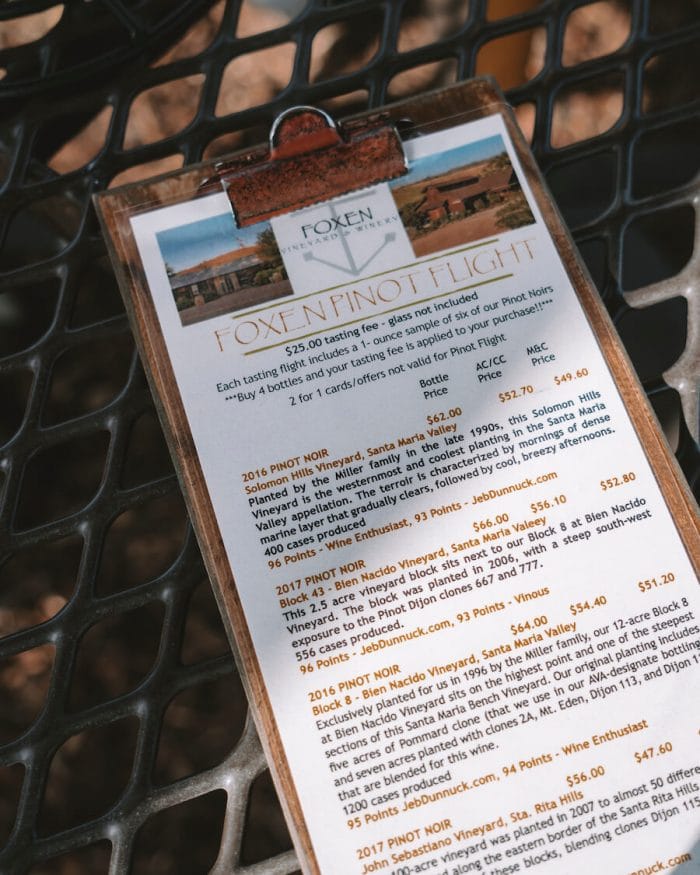 FOXEN
VINEYARD & WINERY
FOXEN PINOT FLIGHT
$25.00 tasting fee - glass not included
Each tasting flight includes a 1- ounce sample of six of our Pinot Noirs
***Buy 4 bottles and your tasting fee is applied to your purchase!!***
2 for 1 cards/offers not valid for Pinot Flight
Bottle Price AC/CC Price M&C Price
2016 PINOT NOIR $62.00 $52.70 $49.60
Solomon Hills Vineyard, Santa Maria Valley
Planted by the Miller family in the late 1990s, this Solomon Hills
Vineyard is the westernmost and coolest planting in the Santa Maria
Valley appellation. The terroir is characterized by mornings of dense
marine layer that gradually clears, followed by cool, breezy afternoons.
400 cases produced
96 Points - Wine Enthusiast, 93 Points - JebDunnuck.com
2017 PINOT NOIR $66.00 $56.10 $52.80
Block 43 - Bien Nacido Vineyard, Santa Maria Valeey
This 2.5 acre vineyard block sits next to our Block 8 at Bien Nacido
Vineyard. The block was planted in 2006, with a steep south-west
exposure to the Pinot Dijon clones 667 and 777.
556 cases produced.
96 Points - JebDunnuck.com, 93 Points - Vinous
2016 PINOT NOIR $64.00 $54.40 $51.20
Block 8 - Bien Nacido Vineyard, Santa Maria Valley
Exclusively planted for us in 1996 by the Miller family, our 12-acre Block 8
at Bien Nacido Vineyard sits on the highest point and one of the steepest
sections of this Santa Maria Bench Vineyard. Our original planting includes
five acres of Pommard clone (that we use in our AVA-designate bottling
and seven acres planted with clones 2A, Mt. Eden, Dijon 113, and Dijon
that are blended for this wine.
1200 cases produced
95 Points JebDunnuck.com, 94 Points - Wine Enthusiast
2017 PINOT NOIR $56.00 $47.60
John Sebastiano Vineyard, Sta. Rita Hills
100-acre vineyard was planted in 2007 to almost 50 differe
along the eastern border of the Santa Rita Hills
these blocks, blending clones Dijon 115
dDunnuck.com